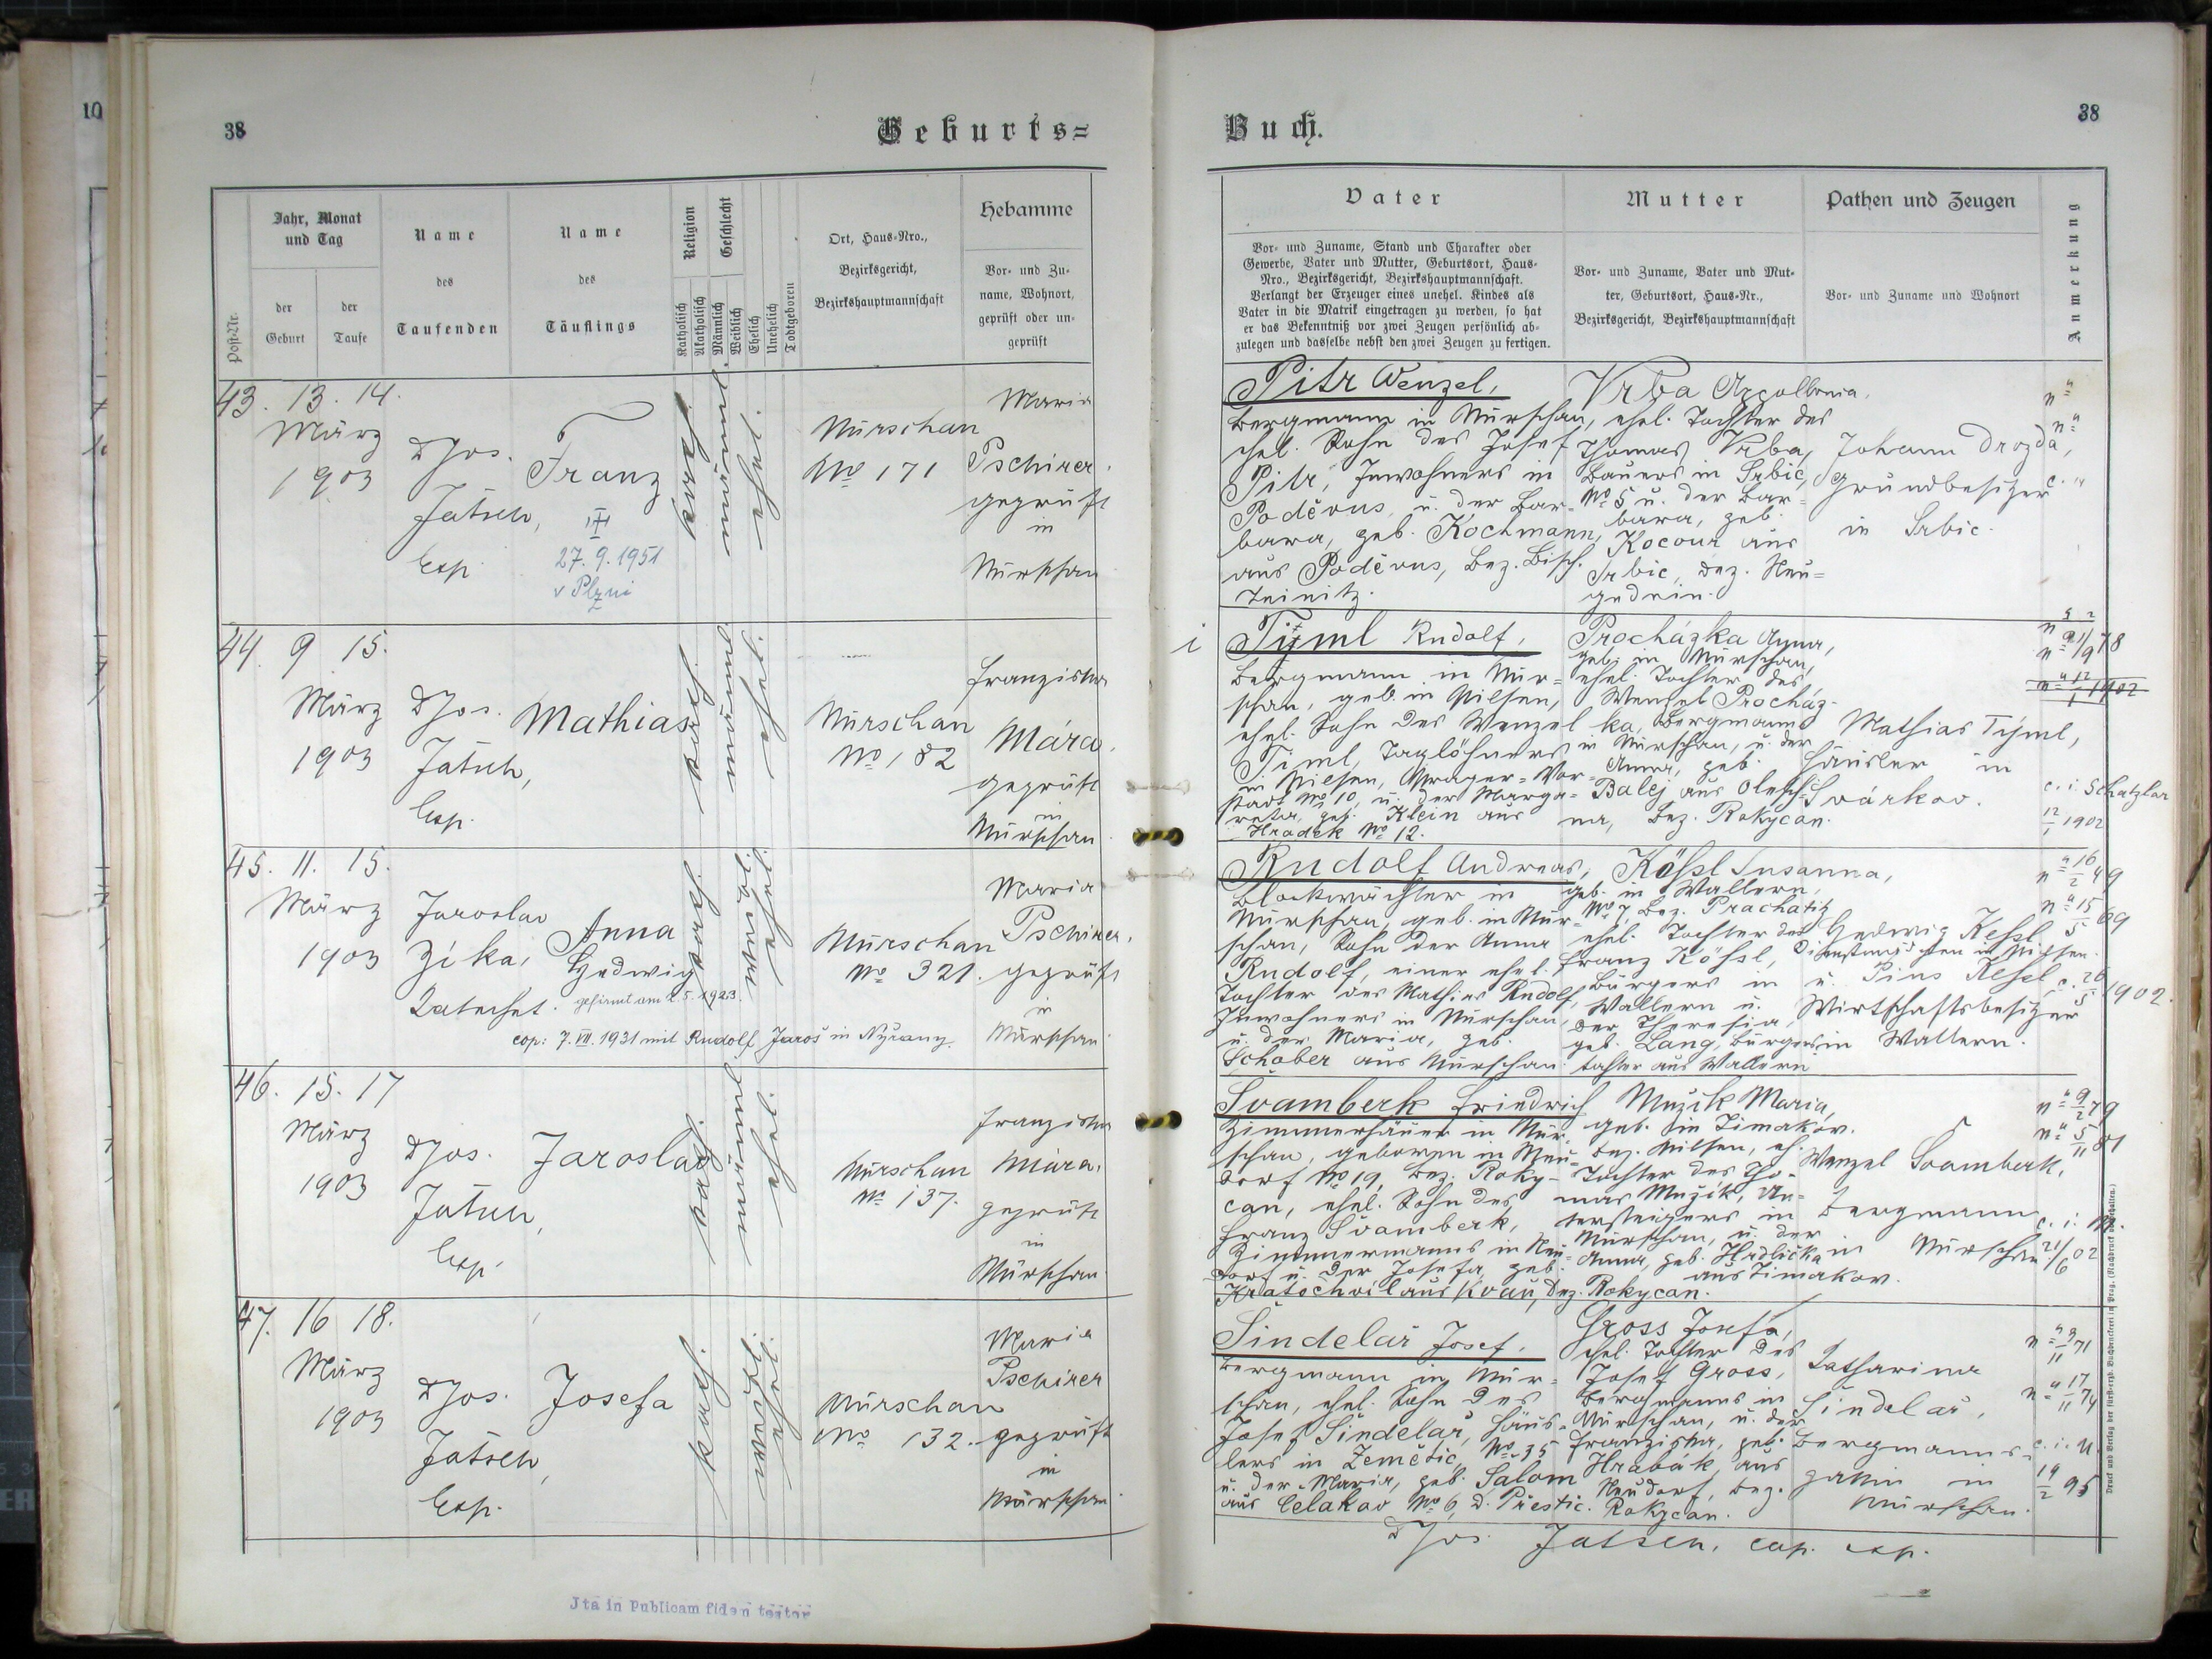 10
38
Geburts=
Post-Nr.
Jahr, Monat
und Tag
der
Geburt
der
Taufe
Name
des
Taufenden
Name
des
Täuflings
Religion
Katholisch
Akatholisch
Geschlecht
Männlich
Weiblich
Ehelich
Unehelich
Todtgeboren
Ort, Haus-Nro.,
Bezirksgericht,
Bezirkshauptmannschaft
Hebamme
Vor- und Zu-
name, Wohnort,
geprüft oder un-
geprüft
43. 13. 14.
März
1903
P. Jos.
Jatsch,
Exp.
Franz
27. 9. 1951
v Plzni
kath.
männl.
ehel.
Nürschan
No 171
Maria
Pschirer.
geprüft
in
Nürschan
44. 9 15.
März
1903
P. Jos.
Jatsch,
Exp.
Mathias
kath.
männl.
ehel.
Nürschan
No 182
Franziska
Mára.
geprüft
in
Nürschan.
45. 11. 15.
März
1903
Jaroslav
Zika,
Katechet.
Anna
Hedwig
gefirmt am 2. 5. 1923.
cop: 7. VII. 1931 mit Rudolf Jaroš in Nýřany.
kath.
weibl.
ehel.
Nürschan
No 321.
Maria
Pschirer.
geprüft
in
Nürschan
46. 15. 17
März
1903
P. Jos.
Jatsch,
Exp.
Jaroslav
kath.
männl.
ehel.
Nürschan
No 137.
Franziska
Mára.
geprüft
in
Nürschan.
47. 16 18.
März
1903
P. Jos.
Jatsch,
Exp.
Josefa
kath.
weibl.
ehel.
Nürschan
No 132.
Maria
Pschirer
geprüft
in
Nürschan.
Jta in Publicam fidem testor
Buch.
38
Vater
Vor- und Zuname, Stand und Charakter oder
Gewerbe, Vater und Mutter, Geburtsort, Haus-
Nro., Bezirksgericht, Bezirkshauptmannschaft.
Verlangt der Erzeuger eines unehel. Kindes als
Vater in die Matrik eingetragen zu werden, so hat
er das Bekenntniß vor zwei Zeugen persönlich ab-
zulegen und dasselbe nebst den zwei Zeugen zu fertigen.
Mutter
Vor- und Zuname, Vater und Mut-
ter, Geburtsort, Haus-Nr.,
Bezirksgericht, Bezirkshauptmannschaft
Pathen und Zeugen
Vor- und Zuname und Wohnort
Anmerkung
Pitr Wenzel,
Bergmann in Nürschan,
ehel. Sohn des Josef
Pitr, Inwohners in
Poděvus, u. der Bar-
bara, geb. Kochmann,
aus Poděvus, Bez. Bisch.
Teinitz.
Vrba Apollonia,
ehel. Tochter des
Thomas Vrba,
Bauers in Srbic,
No 5 u. der Bar-
bara, geb.
Kocour aus
Srbic, Bez. Neu-
gedein.
Johann Drozda,
Grundbesitzer
in Srbic.
i
Tÿml Rudolf,
Bergmann in Nür-
schan, geb. in Pilsen,
ehel. Sohn des Wenzel
Timl, Taglöhners
in Pilsen, Prager-Vor-
stadt No 10, u. der Marga-
reta, geb. Klein aus
Hradek No 12.
Procházka Anna,
geb. in Nürschan,
ehel. Tochter des
Wenzel Procház-
ka, Bergmanns
in Nürschan, u. der
Anna, geb.
Balej aus Olesch-
na, Bez. Rokycan.
Mathias Týml,
Häusler in
Svárkov.
c. i. Schatzlar
12/1 1902
Rudolf Andreas,
Blockwächter in
Nürschan, geb. in Nür-
schan, Sohn der Anna
Rudolf, einer ehel.
Tochter des Mathias Rudolf,
Inwohners in Nürschan,
u. der Maria, geb.
Schober aus Nürschan.
Kößl Susanna,
geb. in Wallern,
No 7, Bez. Prachatitz
ehel. Tochter des
Franz Kößl,
Bürgers in
Wallern u.
der Theresia,
geb. Lang, Bürgers-
tochter aus Wallern
Hedwig Keßl
in Pilsen.
u. Pius Keßl,
Wirtschaftsbesitzer
in Wallern.
Švamberk Friedrich
Zimmerhäuer in Nür-
schan, geboren in Neu-
dorf No 19, Bez. Roky-
can, ehel. Sohn des
Franz Švamberk,
Zimmermanns in Neu-
dorf u. der Josefa, geb.
Kratochvil aus Kvaň, Bez. Rokycan.
Muzik Maria,
geb. in Timakov.
Bez. Pilsen, eh.
Tochter des Tho-
mas Muzik, Un-
tersteigers in
Nürschan, u. der
Anna, geb. Hrdlička
aus Timakov.
Wenzel Švamberk,
Bergmann
in Nürschan
21/6 02
Šindelář Josef,
Bergmann in Nür-
schan, ehel. Sohn des
Josef Šindelář, Häus-
lers in Zemětic, No 35
u. der Maria, geb. Salom
aus Čelakov No 6, B. Přestic.
Gross Josefa,
ehel. Tochter des
Josef Gross,
Bergmanns in
Nürschan, u. der
Franziska, geb.
Hrabák aus
Neudorf, Bez.
Rokycan.
Katharina
Šindelář,
Bergmanns-
gattin in
Nürschan.
19/2 95
P. Jos. Jatsch, cap. exp.